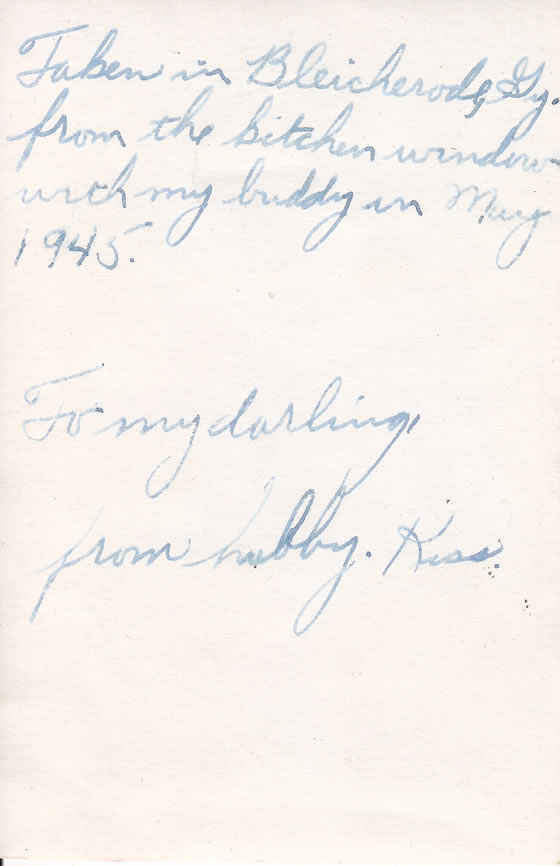 Taken in Bleicherode, Gy.
from the kitchen window
with my buddy in May
1945.
To my darling,
from hubby. Kiss.